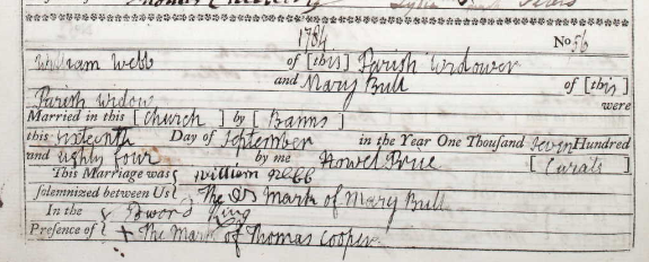 1784 No 56
William Webb of [this] Parish Widower
and Mary Bull of [this]
Parish Widow were
Married in this [Church] by [Banns]
this sixteenth Day of September in the Year One Thousand seven Hundred
and eighty four by me Howel Prue [Curate]
This Marriage was William Webb
solemnized between Us The Mark of Mary Bull
In the King
Presence of + The Mark of Thomas Cooper